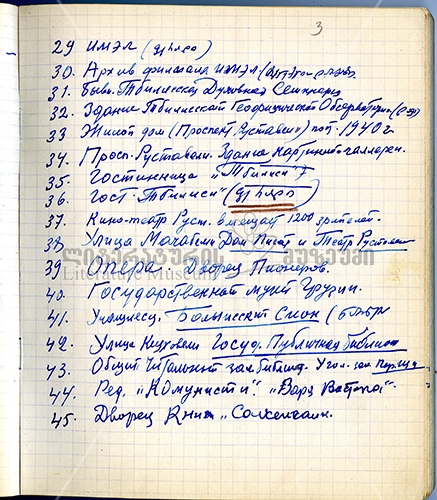 3
29 ИМЭЛ (
30. Архив филиала ИМЭЛ (
31. Бывш. Тбилисская Духовная Семинария
32. Здание Тбилисской Геофизической Обсерватории (
33 Жилой дом (Проспект Руставели) пост. 1940 г
34. Просп. Руставели. Здание картинной галлереи.
35. Гостинница „Тбилиси"
36. Гост. Тбилиси" (
37. Кино-театр Руст. вмещает 1200 зрителей.
38 Улица Мачабели Дом Писат и Театр Руставели
39 Опера. Дворец Пионеров.
ლიტერატურის მუზეუმი
Literature Museum
40. Государственный музей Грузии.
41. Сион (
42. Улица Кецховели Госуд. Публичная библиот
43. Общий Читальный зал библиот.
44. Ред. „Комунисти". „Заря Востока".
45. Дворец Книги „Сахелгами.